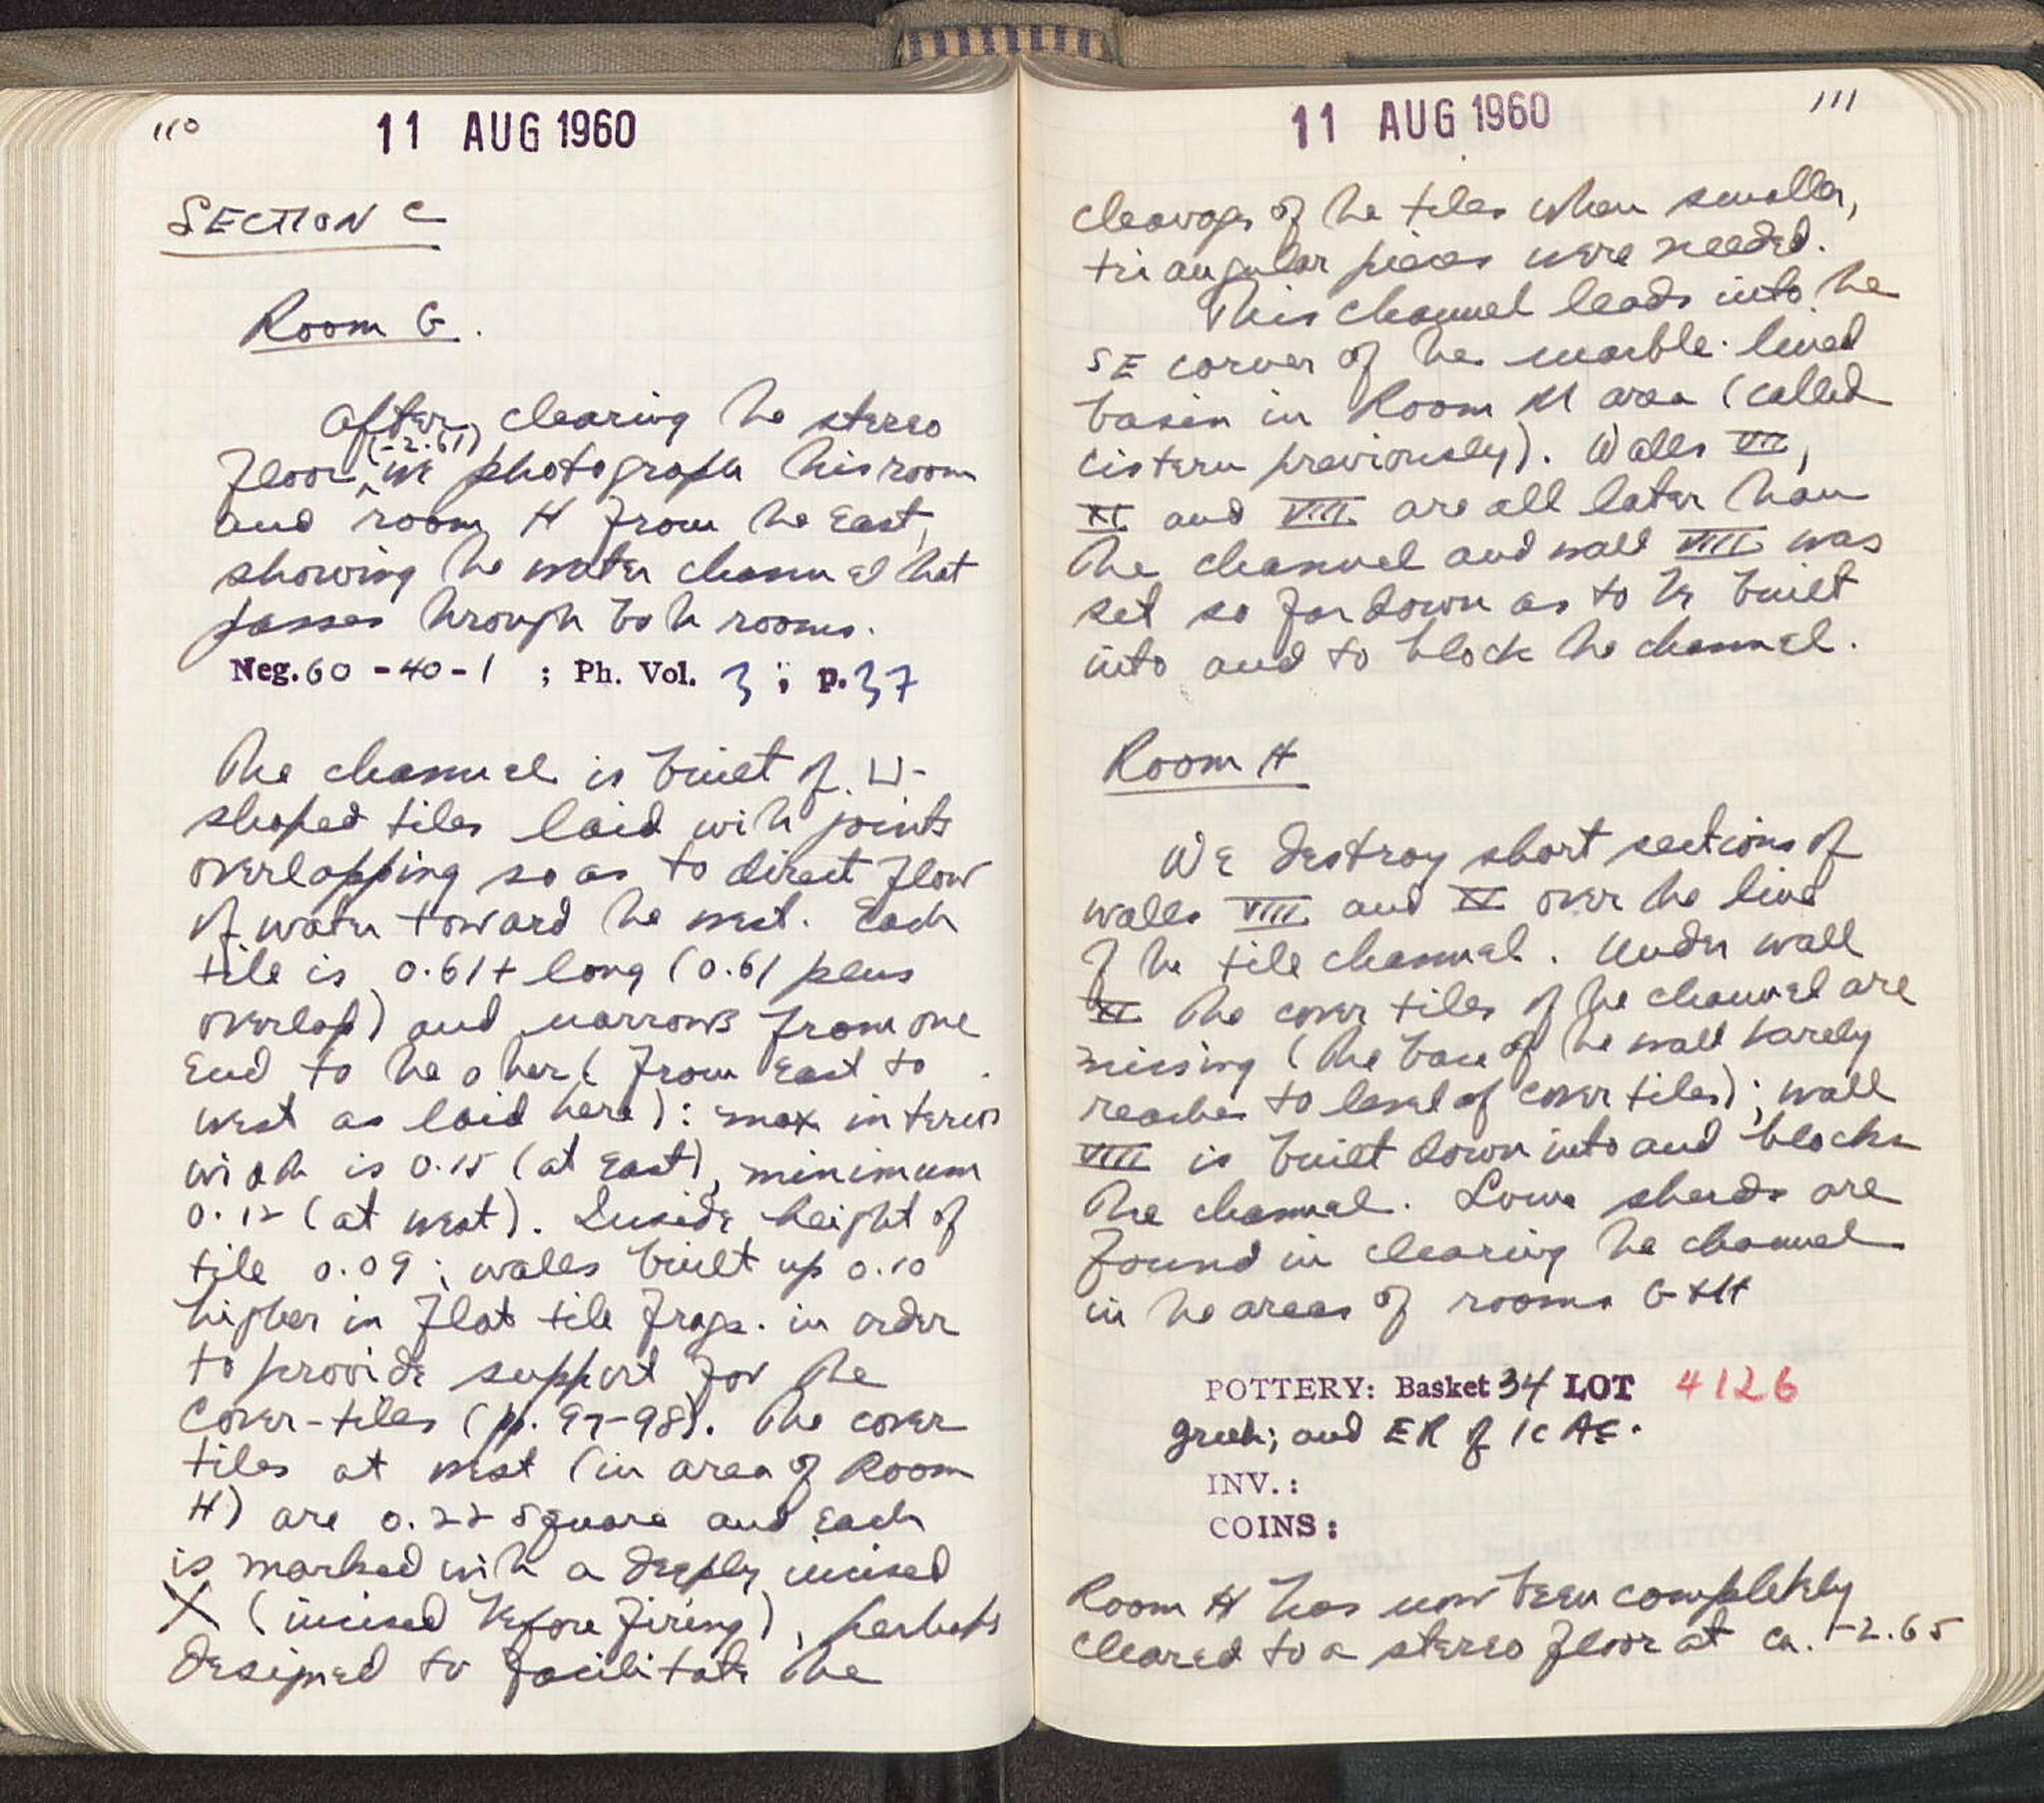 110
11 AUG 1960
SECTION C
Room G.
After clearing the stereo
(-2.61)
floor, we photograph this room
and room H from the East,
showing the water channel that
passes through both rooms.
Neg. 60 - 40 - 1 ; Ph. Vol. 3 ; p. 37
The channel is built of ⊔-
shaped tiles laid with joints
overlapping so as to direct flow
of water toward the west. Each
tile is 0.61+ long (0.61 plus
overlap) and narrows from one
end to the other (from East to
west as laid here): max interior
width is 0.15 (at East), minimum
0.12 (at west). Inside height of
tile 0.09; walls built up 0.10
higher in flat tile frags. in order
to provide support for the
cover-tiles (p. 97-98). The cover
tiles at west (in area of Room
H) are 0.22 square and each
is marked with a deeply incised
X (incised before firing), perhaps
designed to facilitate the
111
11 AUG 1960
cleavage of the tiles when smaller,
triangular pieces were needed.
This channel leads into the
SE corner of the marble-lined
basin in Room M area (called
cistern previously). Walls VII,
XI and VIII are all later than
the channel and wall VIII was
set so far down as to be built
into and to block the channel.
Room H
We destroy short sections of
walls VIII and XI over the line
of the tile channel. Under wall
XI the cover tiles of the channel are
missing (the base of the wall barely
reaches to level of cover tiles); wall
VIII is built down into and blocks
the channel. Some sherds are
found in clearing the channel
in the areas of rooms G + H
POTTERY: Basket 34 LOT 4126
Greek; and ER of 1c AC.
INV.:
COINS:
Room H has now been completely
cleared to a stereo floor at ca. -2.65